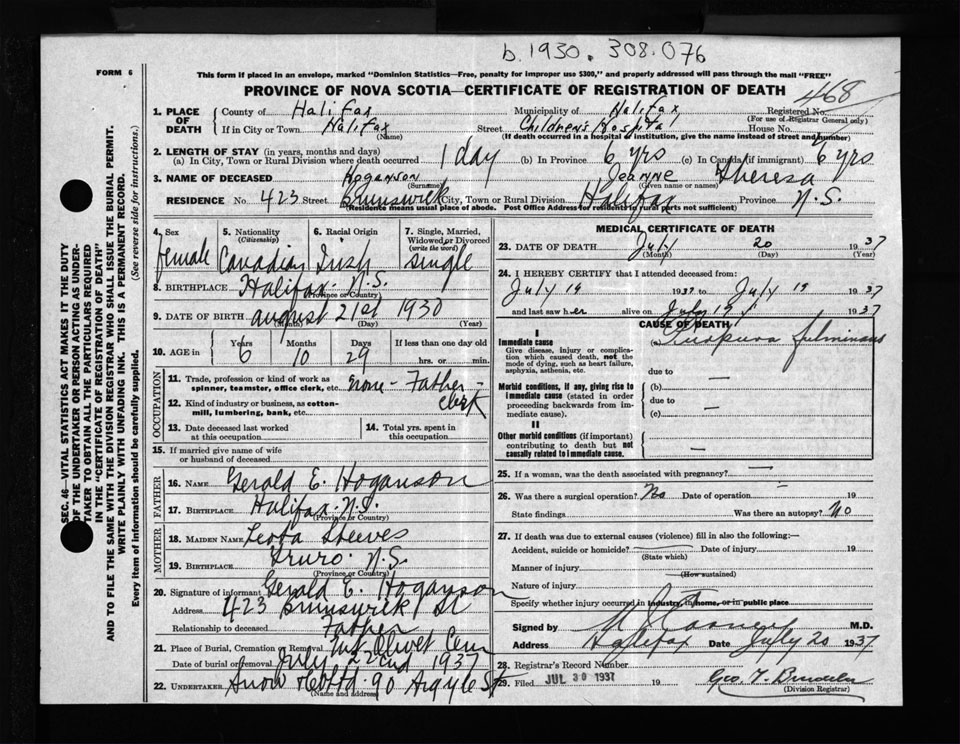 b.1930.308.076
FORM 6
This form if placed in an envelope, marked "Dominion Statistics—Free, penalty for improper use $300," and properly addressed will pass through the mail "FREE"
PROVINCE OF NOVA SCOTIA—CERTIFICATE OF REGISTRATION OF DEATH
468
1. PLACE OF DEATH
County of Halifax Municipality of Halifax Registered No.
(For use of Registrar General only)
If in City or Town Halifax Street Children's Hospital House No.
(Name) (If death occurred in a hospital or institution, give the name instead of street and number)
2. LENGTH OF STAY (in years, months and days)
(a) In City, Town or Rural Division where death occurred 1 day (b) In Province 6 yrs (c) In Canada (if immigrant) 6 yrs
3. NAME OF DECEASED Hoganson Jeanne Theresa
(Surname) (Given name or names)
RESIDENCE No. 423 Street Brunswick City, Town or Rural Division Halifax Province N.S.
(Residence means usual place of abode. Post Office Address for residents in rural parts not sufficient)
4. Sex 5. Nationality (Citizenship) 6. Racial Origin 7. Single, Married, Widowed or Divorced (write the word)
female Canadian Irish single
8. BIRTHPLACE Halifax. N.S.
(Province or Country)
9. DATE OF BIRTH august 21st 1930
(Month) (Day) (Year)
10. AGE in Years Months Days If less than one day old
6 10 29 hrs. or min.
OCCUPATION
11. Trade, profession or kind of work as spinner, teamster, office clerk, etc. none - Father - clerk
12. Kind of industry or business, as cotton-mill, lumbering, bank, etc.
13. Date deceased last worked at this occupation
14. Total yrs. spent in this occupation
15. If married give name of wife or husband of deceased
FATHER
16. NAME Gerald E. Hoganson
17. BIRTHPLACE Halifax. N.S.
(Province or Country)
MOTHER
18. MAIDEN NAME Steeves
19. BIRTHPLACE Truro. N.S.
(Province or Country)
20. Signature of informant Gerald E. Hoganson
Address 423 Brunswick St
Relationship to deceased Father
21. Place of Burial, Cremation or Removal Mt. Olivet Cem
Date of burial or removal July 22nd 1937
22. UNDERTAKER Snow & Co Ltd. 90 Argyle St
(Name and address)
MEDICAL CERTIFICATE OF DEATH
23. DATE OF DEATH July 20 1937
(Month) (Day) (Year)
24. I HEREBY CERTIFY that I attended deceased from:
July 19 1937 to July 19 1937
and last saw her alive on July 19 1937
CAUSE OF DEATH
I
Immediate cause (a) Purpura fulminans
Give disease, injury or complication which caused death, not the mode of dying, such as heart failure, asphyxia, asthenia, etc.
due to
Morbid conditions, if any, giving rise to immediate cause (stated in order proceeding backwards from immediate cause).
(b) —
due to
(c) —
II
Other morbid conditions (if important) contributing to death but not causally related to immediate cause. —
25. If a woman, was the death associated with pregnancy? —
26. Was there a surgical operation? No Date of operation 19
State findings Was there an autopsy? No
27. If death was due to external causes (violence) fill in also the following:—
Accident, suicide or homicide? Date of injury 19
(State which)
Manner of injury
(How sustained)
Nature of injury
Specify whether injury occurred in industry, in home, or in public place
Signed by M.D.
Address Halifax Date July 20 1937
28. Registrar's Record Number
29. Filed JUL 30 1937 19 Geo. T.
(Division Registrar)
SEC. 46—VITAL STATISTICS ACT MAKES IT THE DUTY
OF THE UNDERTAKER OR PERSON ACTING AS UNDER-
TAKER TO OBTAIN ALL THE PARTICULARS REQUIRED
IN THE "CERTIFICATE OF REGISTRATION OF DEATH"
AND TO FILE THE SAME WITH THE DIVISION REGISTRAR WHO SHALL ISSUE THE BURIAL PERMIT.
WRITE PLAINLY WITH UNFADING INK. THIS IS A PERMANENT RECORD.
Every item of information should be carefully supplied. (See reverse side for instructions.)